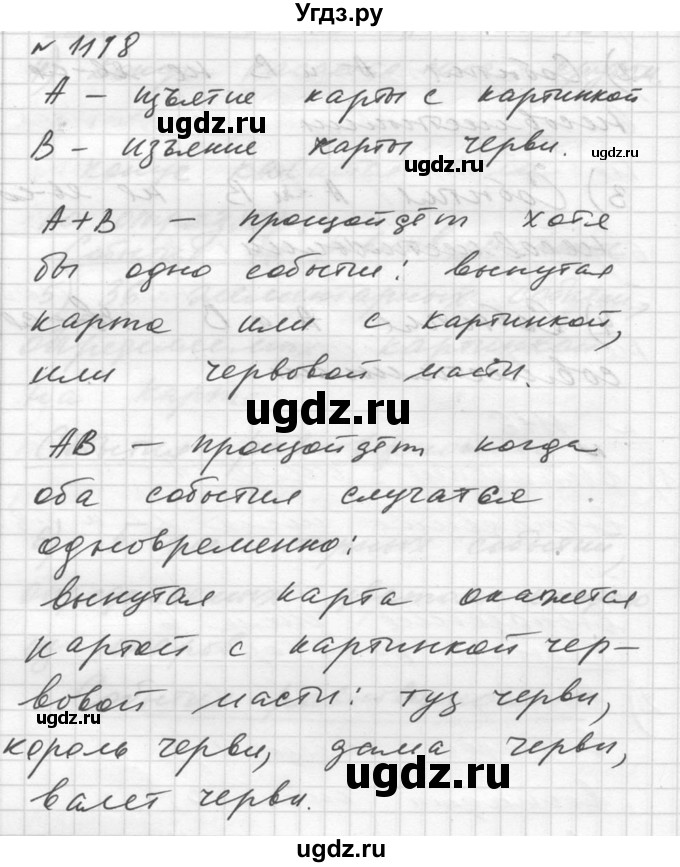 Угдз.ру
№ 1198
А – изъятие карты с картинкой
ugdz.ru
ugdz.ru
ugdz.ru
В – изъяние карты черви.
А+В – произойдёт хотя
бы одно событие: вынутая
карта или с картинкой,
или червовой масти.
ugdz.ru
АВ – произойдёт когда
оба события случатся
одновременно:
вынутая карта окажется
картой с картинкой чер-
вовой масти: туз черви,
ugdz.ru
король черви, дама черви,
ugdz.ru
валет черви.
ugdz.ru